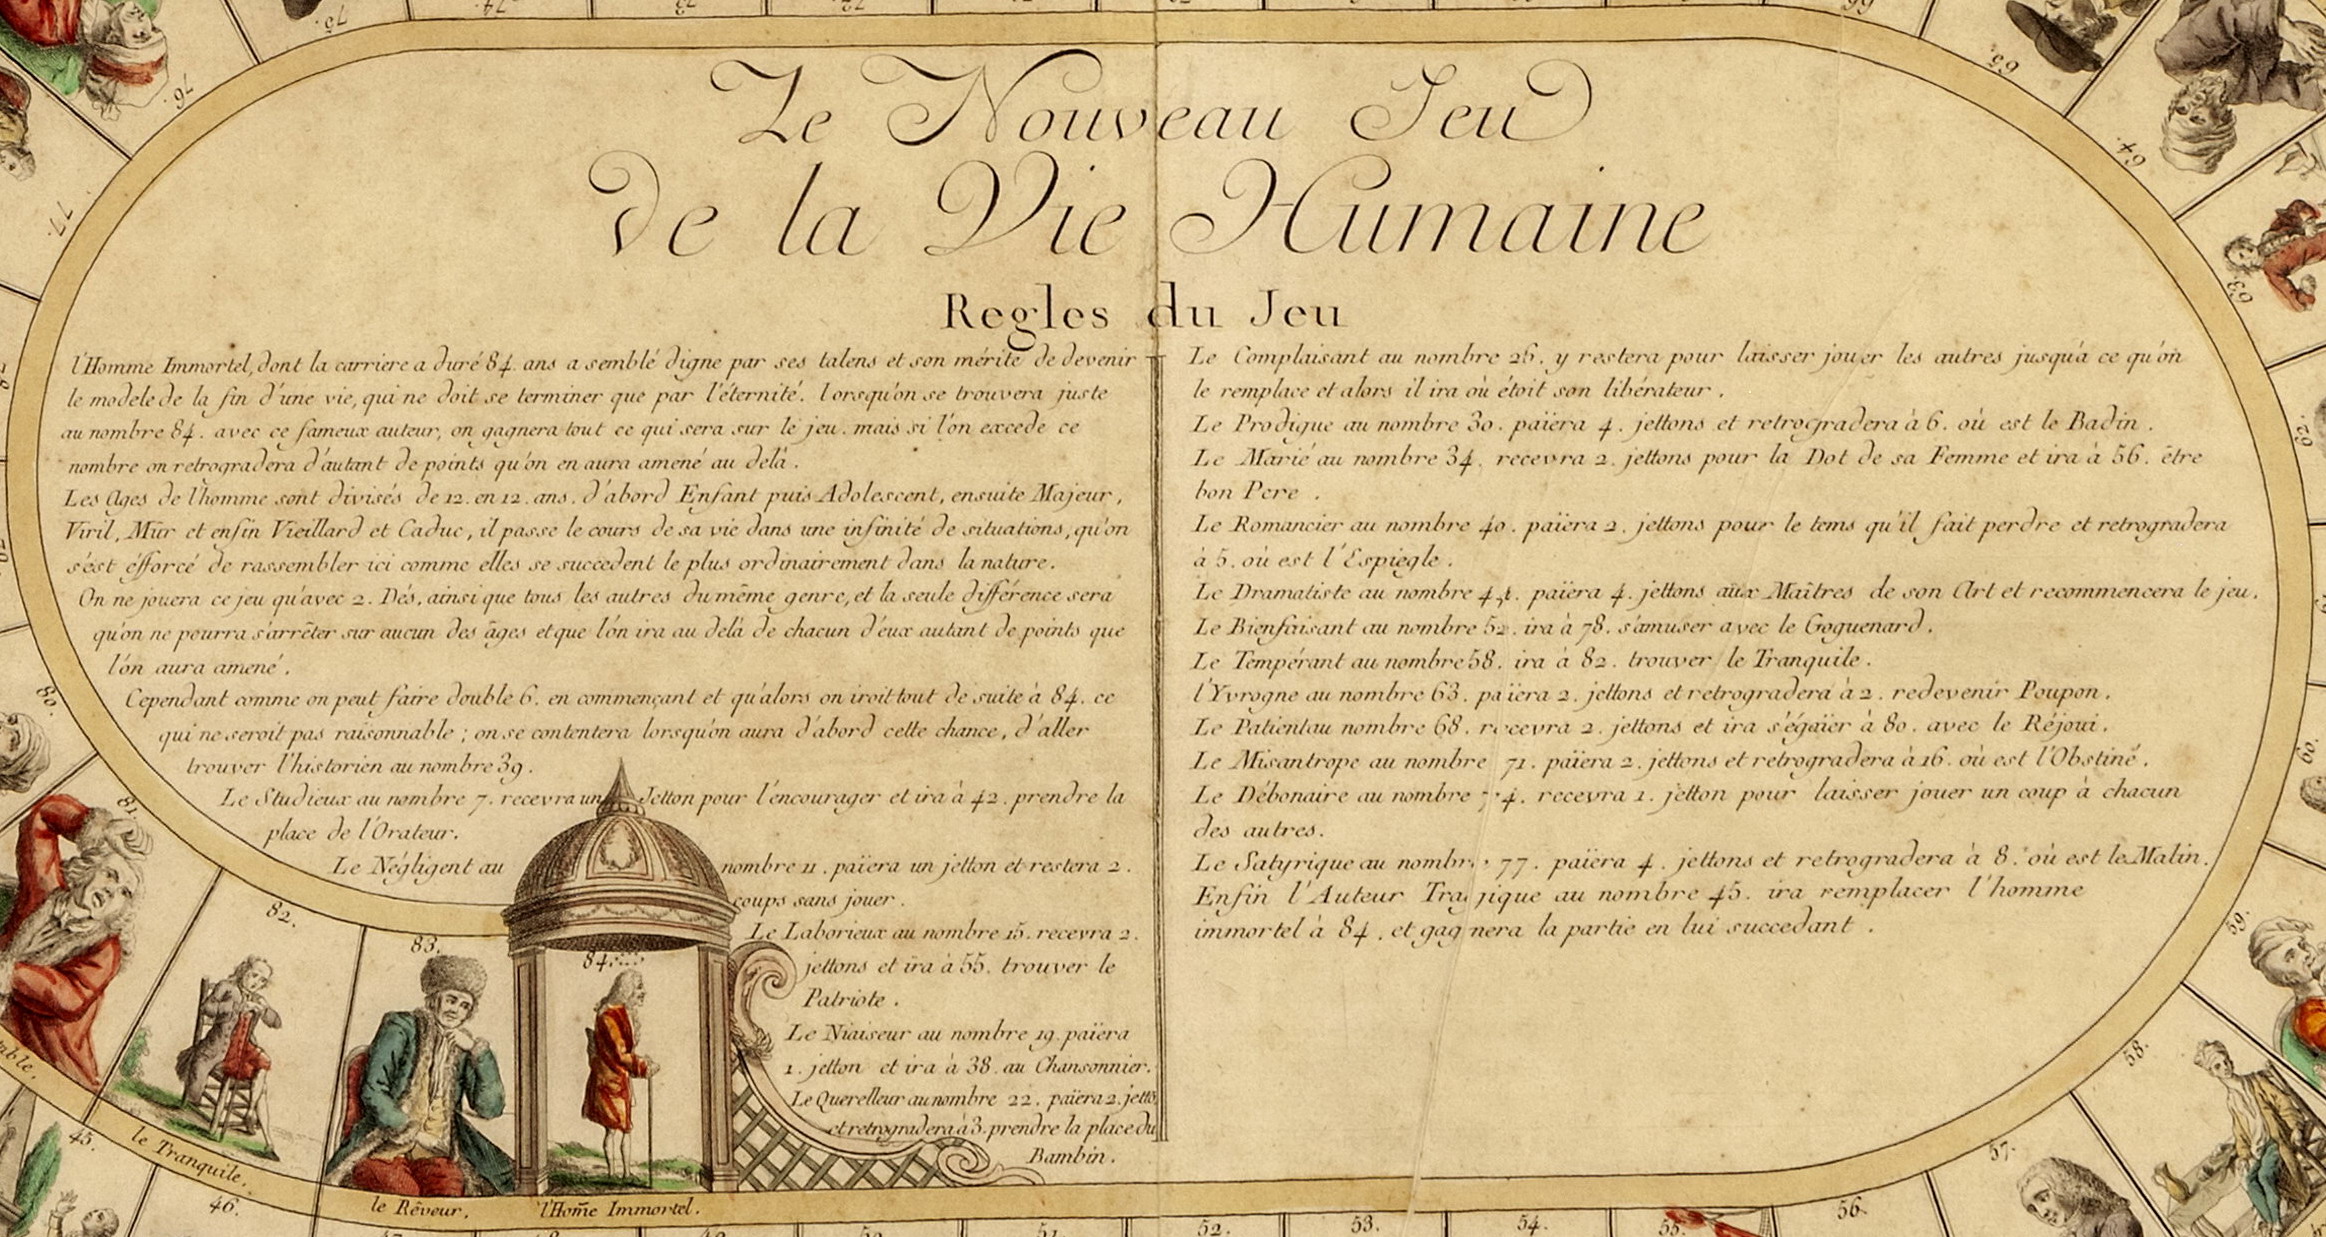 Le Nouveau Jeu
de la Vie Humaine
Regles du Jeu
l'Homme Immortel, dont la carriere a duré 84. ans a semblé digne par ses talens et son mérite de devenir
le modele de la fin d'une vie, qui ne doit se terminer que par l'éternité. lorsqu'on se trouvera juste
au nombre 84. avec ce fameux auteur, on gagnera tout ce qui sera sur le jeu. mais si l'on excede ce
nombre on retrogradera d'autant de points qu'on en aura amené au delà.
Les Ages de l'homme sont divisés de 12. en 12. ans. d'abord Enfant puis Adolescent, ensuite Majeur,
Viril, Mûr et enfin Vieillard et Caduc, il passe le cours de sa vie dans une infinité de situations, qu'on
s'ést éfforcé de rassembler ici comme elles se succedent le plus ordinairement dans la nature.
On ne jouera ce jeu qu'avec 2. Dés, ainsi que tous les autres du même genre, et la seule différence sera
qu'on ne pourra s'arrêter sur aucun des âges et que l'ón ira au delà de chacun d'eux autant de points que
l'ón aura amené.
Cependant comme on peut faire double 6. en commençant et qu'alors on iroit tout de suite à 84. ce
qui ne seroit pas raisonnable ; on se contentera lorsqu'on aura d'abord cette chance, d'aller
trouver l'historien au nombre 39.
Le Studieux au nombre 7. recevra un Jetton pour l'encourager et ira à 42. prendre la
place de l'Orateur.
Le Négligent au nombre 11. païera un jetton et restera 2.
coups sans jouer.
Le Laborieux au nombre 15. recevra 2.
jettons et ira à 55. trouver le
Patriote.
Le Niaiseur au nombre 19. païera
1. jetton et ira à 38. au Chansonnier.
Le Querelleur au nombre 22. païera 2. jetto
et retrogradera à 3. prendre la place du
Bambin.
Le Complaisant au nombre 26. y restera pour laisser jouer les autres jusqu'à ce qu'on
le remplace et alors il ira où étoit son libérateur.
Le Prodigue au nombre 30. païera 4. jettons et retrogradera à 6. où est le Badin.
Le Marié au nombre 34. recevra 2. jettons pour la Dot de sa Femme et ira à 56. être
bon Pere.
Le Romancier au nombre 40. païera 2. jettons pour le tems qu'il fait perdre et retrogradera
à 5. où est l'Espiègle.
Le Dramatiste au nombre païera 4. jettons aux Maîtres de son Art et recommencera le jeu.
Le Bienfaisant au nombre 52. ira à 78. s'amuser avec le Goguenard.
Le Tempérant au nombre 58. ira à 82. trouver le Tranquile.
l'Yvrogne au nombre 63. païera 2. jettons et retrogradera à 2. redevenir Poupon.
Le Patient au nombre 68. recevra 2. jettons et ira s'égaïer à 80. avec le Réjoui.
Le Misantrope au nombre 71. païera 2. jettons et retrogradera à 16. où est l'Obstiné.
Le Débonaire au nombre 74. recevra 1. jetton pour laisser jouer un coup à chacun
des autres.
Le Satyrique au nombre 77. païera 4. jettons et retrogradera à 8. où est le Malin.
Enfin l'Auteur Tragique au nombre 45. ira remplacer l'homme
immortel à 84. et gagnera la partie en lui succedant.
75.
76.
77.
80.
81.
82.
83.
84
le Tranquile.
le Rêveur.
l'Hom̃e Immortel.
45.
46.
51.
52.
53.
54.
55.
56.
57.
58.
59.
60.
62.
63.
64.
65.
66